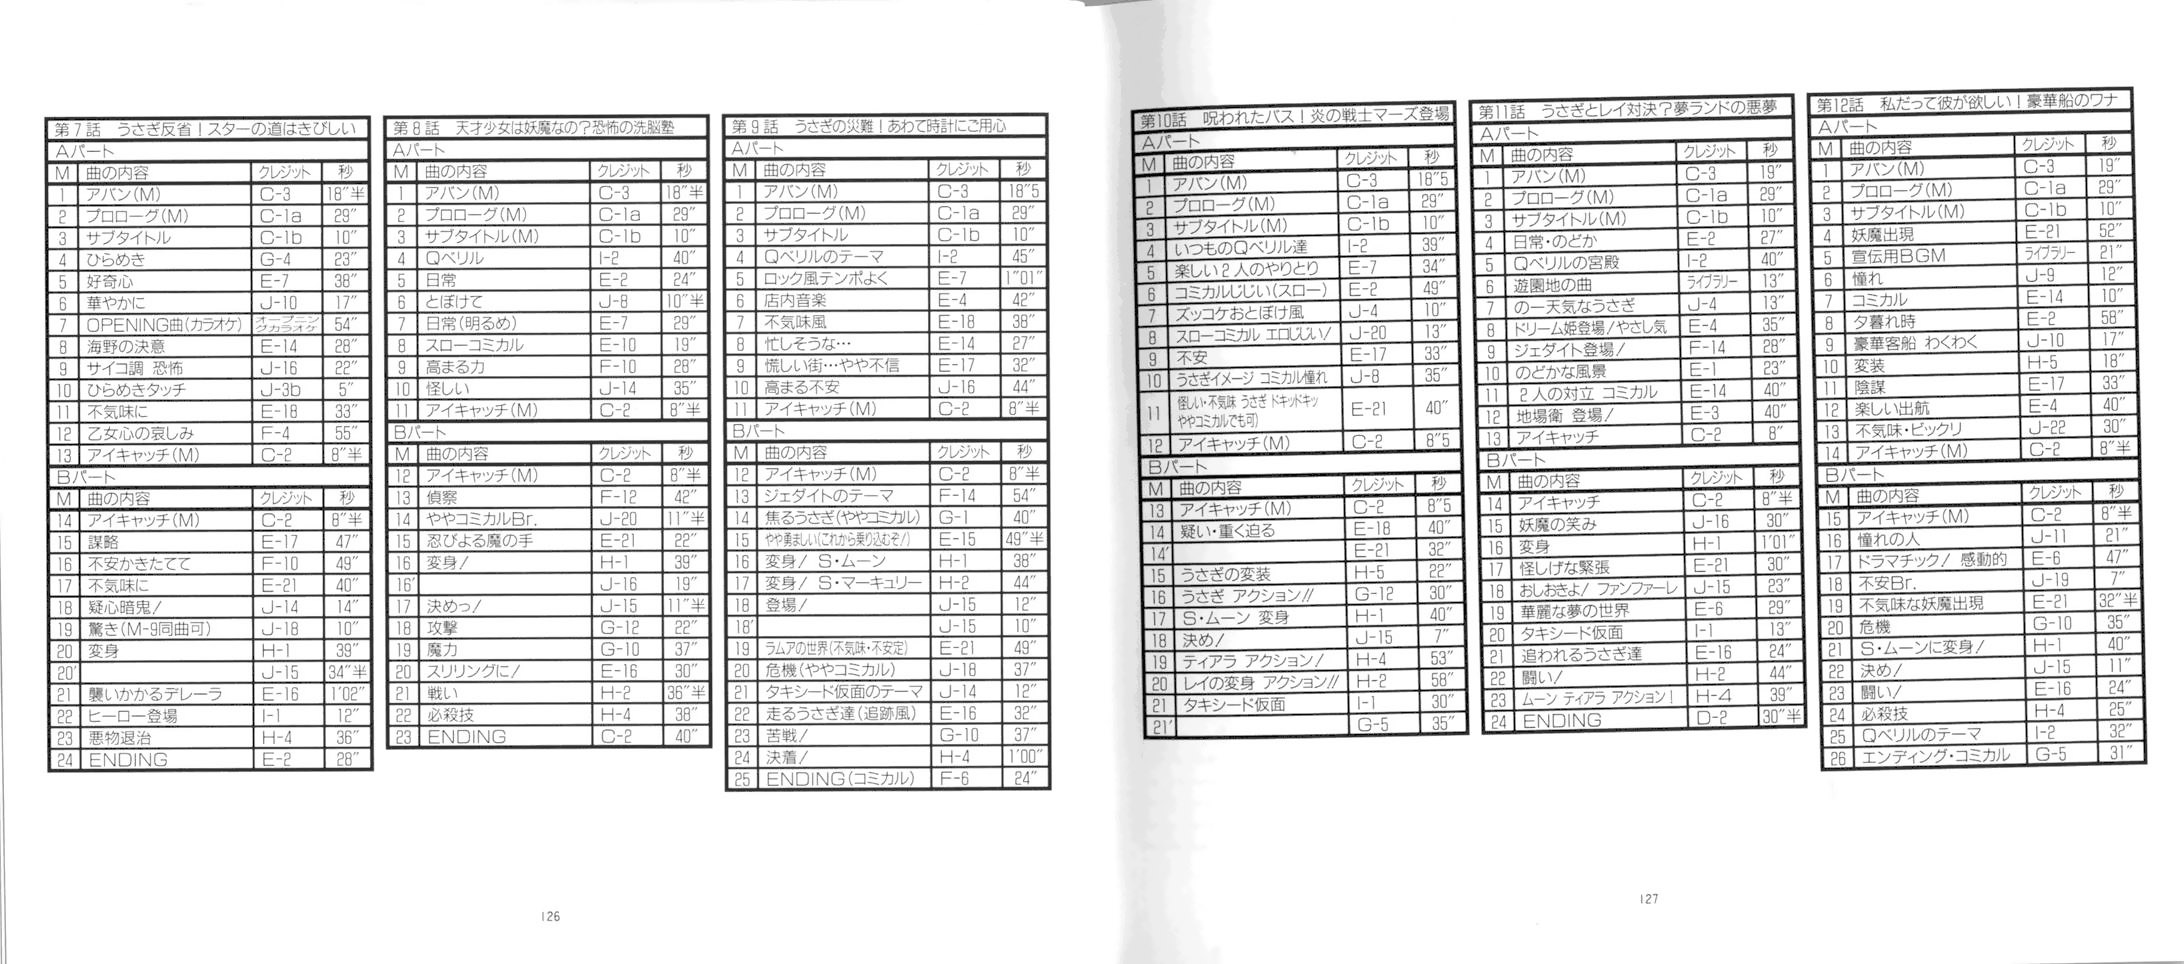 第7話 うさぎ反省！スターの道はきびしい
Aパート
M 曲の内容 クレジット 秒
1 アバン(M) C-3 18″半
2 プロローグ(M) C-1a 29″
3 サブタイトル C-1b 10″
4 ひらめき G-4 23″
5 好奇心 E-7 38″
6 華やかに J-10 17″
7 OPENING曲(カラオケ) オープニングカラオケ 54″
8 海野の決意 E-14 28″
9 サイコ調 恐怖 J-16 22″
10 ひらめきタッチ J-3b 5″
11 不気味に E-18 33″
12 乙女心の哀しみ F-4 55″
13 アイキャッチ(M) C-2 8″半
Bパート
M 曲の内容 クレジット 秒
14 アイキャッチ(M) C-2 8″半
15 謀略 E-17 47″
16 不安かきたてて F-10 49″
17 不気味に E-21 40″
18 疑心暗鬼！ J-14 14″
19 驚き(M-9同曲可) J-18 10″
20 変身 H-1 39″
20′ J-15 34″半
21 襲いかかるデレーラ E-16 1′02″
22 ヒーロー登場 I-1 12″
23 悪物退治 H-4 36″
24 ENDING E-2 28″
第8話 天才少女は妖魔なの？恐怖の洗脳塾
Aパート
M 曲の内容 クレジット 秒
1 アバン(M) C-3 18″半
2 プロローグ(M) C-1a 29″
3 サブタイトル(M) C-1b 10″
4 Qベリル I-2 40″
5 日常 E-2 24″
6 とぼけて J-8 10″半
7 日常(明るめ) E-7 29″
8 スローコミカル E-10 19″
9 高まる力 F-10 28″
10 怪しい J-14 35″
11 アイキャッチ(M) C-2 8″半
Bパート
M 曲の内容 クレジット 秒
12 アイキャッチ(M) C-2 8″半
13 偵察 F-12 42″
14 ややコミカルBr. J-20 11″半
15 忍びよる魔の手 E-21 22″
16 変身！ H-1 39″
16′ J-16 19″
17 決めっ！ J-15 11″半
18 攻撃 G-12 22″
19 魔力 G-10 37″
20 スリリングに！ E-16 30″
21 戦い H-2 36″半
22 必殺技 H-4 38″
23 ENDING C-2 40″
第9話 うさぎの災難！あわて時計にご用心
Aパート
M 曲の内容 クレジット 秒
1 アバン(M) C-3 18″5
2 プロローグ(M) C-1a 29″
3 サブタイトル C-1b 10″
4 Qベリルのテーマ I-2 45″
5 ロック風テンポよく E-7 1″01″
6 店内音楽 E-4 42″
7 不気味風 E-18 38″
8 忙しそうな… E-14 27″
9 慌しい街…やや不信 E-17 32″
10 高まる不安 J-16 44″
11 アイキャッチ(M) C-2 8″半
Bパート
M 曲の内容 クレジット 秒
12 アイキャッチ(M) C-2 8″半
13 ジェダイトのテーマ F-14 54″
14 焦るうさぎ(ややコミカル) G-1 40″
15 やや勇ましい(これから乗り込むぞ！) E-15 49″半
16 変身！ S・ムーン H-1 38″
17 変身！ S・マーキュリー H-2 44″
18 登場！ J-15 12″
18′ J-15 10″
19 ラムアの世界(不気味・不安定) E-21 49″
20 危機(ややコミカル) J-18 37″
21 タキシード仮面のテーマ J-14 12″
22 走るうさぎ達(追跡風) E-16 32″
23 苦戦！ G-10 37″
24 決着！ H-4 1′00″
25 ENDING(コミカル) F-6 24″
126
第10話 呪われたバス！炎の戦士マーズ登場
Aパート
M 曲の内容 クレジット 秒
1 アバン(M) C-3 18″5
2 プロローグ(M) C-1a 29″
3 サブタイトル(M) C-1b 10″
4 いつものQベリル達 I-2 39″
5 楽しい2人のやりとり E-7 34″
6 コミカルじじい(スロー) E-2 49″
7 ズッコケおとぼけ風 J-4 10″
8 スローコミカル エロじじい！ J-20 13″
9 不安 E-17 33″
10 うさぎイメージ コミカル憧れ J-8 35″
11 怪しい・不気味 うさぎ ドキッドキッ ややコミカルでも可) E-21 40″
12 アイキャッチ(M) C-2 8″5
Bパート
M 曲の内容 クレジット 秒
13 アイキャッチ(M) C-2 8″5
14 疑い・重く迫る E-18 40″
14′ E-21 32″
15 うさぎの変装 H-5 22″
16 うさぎ アクション！！ G-12 30″
17 S・ムーン 変身 H-1 40″
18 決め！ J-15 7″
19 ティアラ アクション！ H-4 53″
20 レイの変身 アクション！！ H-2 58″
21 タキシード仮面 I-1 30″
21′ G-5 35″
第11話 うさぎとレイ対決？夢ランドの悪夢
Aパート
M 曲の内容 クレジット 秒
1 アバン(M) C-3 19″
2 プロローグ(M) C-1a 29″
3 サブタイトル(M) C-1b 10″
4 日常・のどか E-2 27″
5 Qベリルの宮殿 I-2 40″
6 遊園地の曲 ライブラリー 13″
7 のー天気なうさぎ J-4 13″
8 ドリーム姫登場！やさし気 E-4 35″
9 ジェダイト登場！ F-14 28″
10 のどかな風景 E-1 23″
11 2人の対立 コミカル E-14 40″
12 地場衛 登場！ E-3 40″
13 アイキャッチ C-2 8″
Bパート
M 曲の内容 クレジット 秒
14 アイキャッチ C-2 8″半
15 妖魔の笑み J-16 30″
16 変身 H-1 1′01″
17 怪しげな緊張 E-21 30″
18 おしおきよ！ ファンファーレ J-15 23″
19 華麗な夢の世界 E-6 29″
20 タキシード仮面 I-1 13″
21 追われるうさぎ達 E-16 24″
22 闘い！ H-2 44″
23 ムーン ティアラ アクション！ H-4 39″
24 ENDING D-2 30″半
第12話 私だって彼が欲しい！豪華船のワナ
Aパート
M 曲の内容 クレジット 秒
1 アバン(M) C-3 19″
2 プロローグ(M) C-1a 29″
3 サブタイトル(M) C-1b 10″
4 妖魔出現 E-21 52″
5 宣伝用BGM ライブラリー 21″
6 憧れ J-9 12″
7 コミカル E-14 10″
8 夕暮れ時 E-2 58″
9 豪華客船 わくわく J-10 17″
10 変装 H-5 18″
11 陰謀 E-17 33″
12 楽しい出航 E-4 40″
13 不気味・ビックリ J-22 30″
14 アイキャッチ(M) C-2 8″半
Bパート
M 曲の内容 クレジット 秒
15 アイキャッチ(M) C-2 8″半
16 憧れの人 J-11 21″
17 ドラマチック！ 感動的 E-6 47″
18 不安Br. J-19 7″
19 不気味な妖魔出現 E-21 32″半
20 危機 G-10 35″
21 S・ムーンに変身！ H-1 40″
22 決め！ J-15 11″
23 闘い！ E-16 24″
24 必殺技 H-4 25″
25 Qベリルのテーマ I-2 32″
26 エンディング・コミカル G-5 31″
127